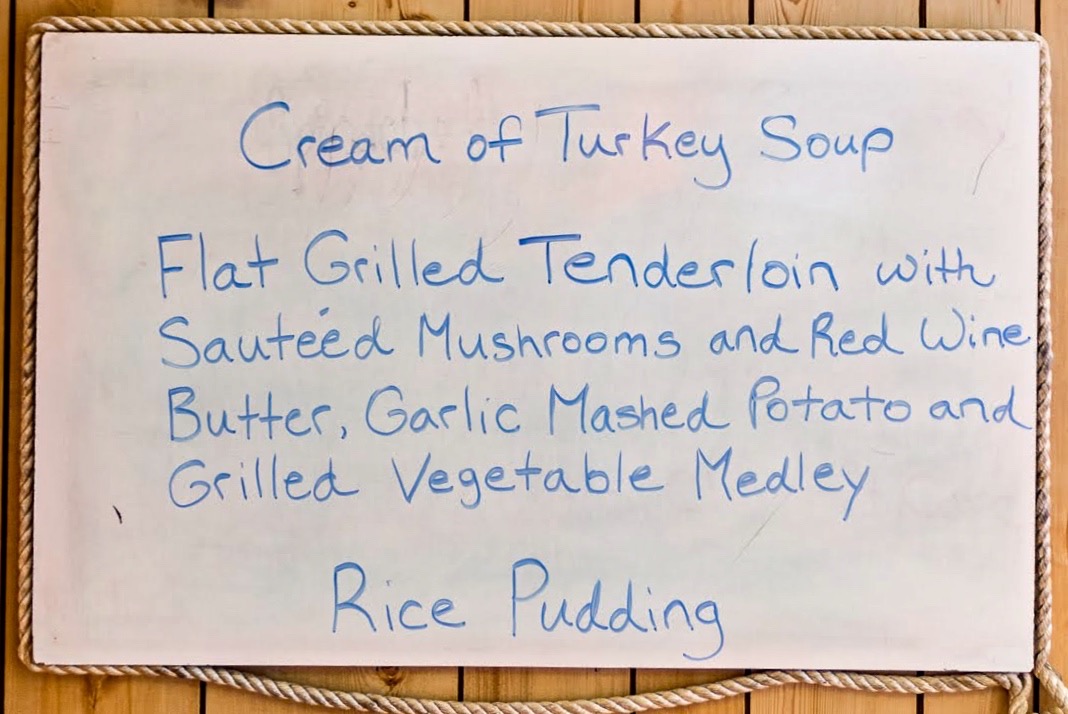 Cream of Turkey Soup
Flat Grilled Tenderloin with
Sauteéd Mushrooms and Red Wine
Butter, Garlic Mashed Potato and
Grilled Vegetable Medley
Rice Pudding